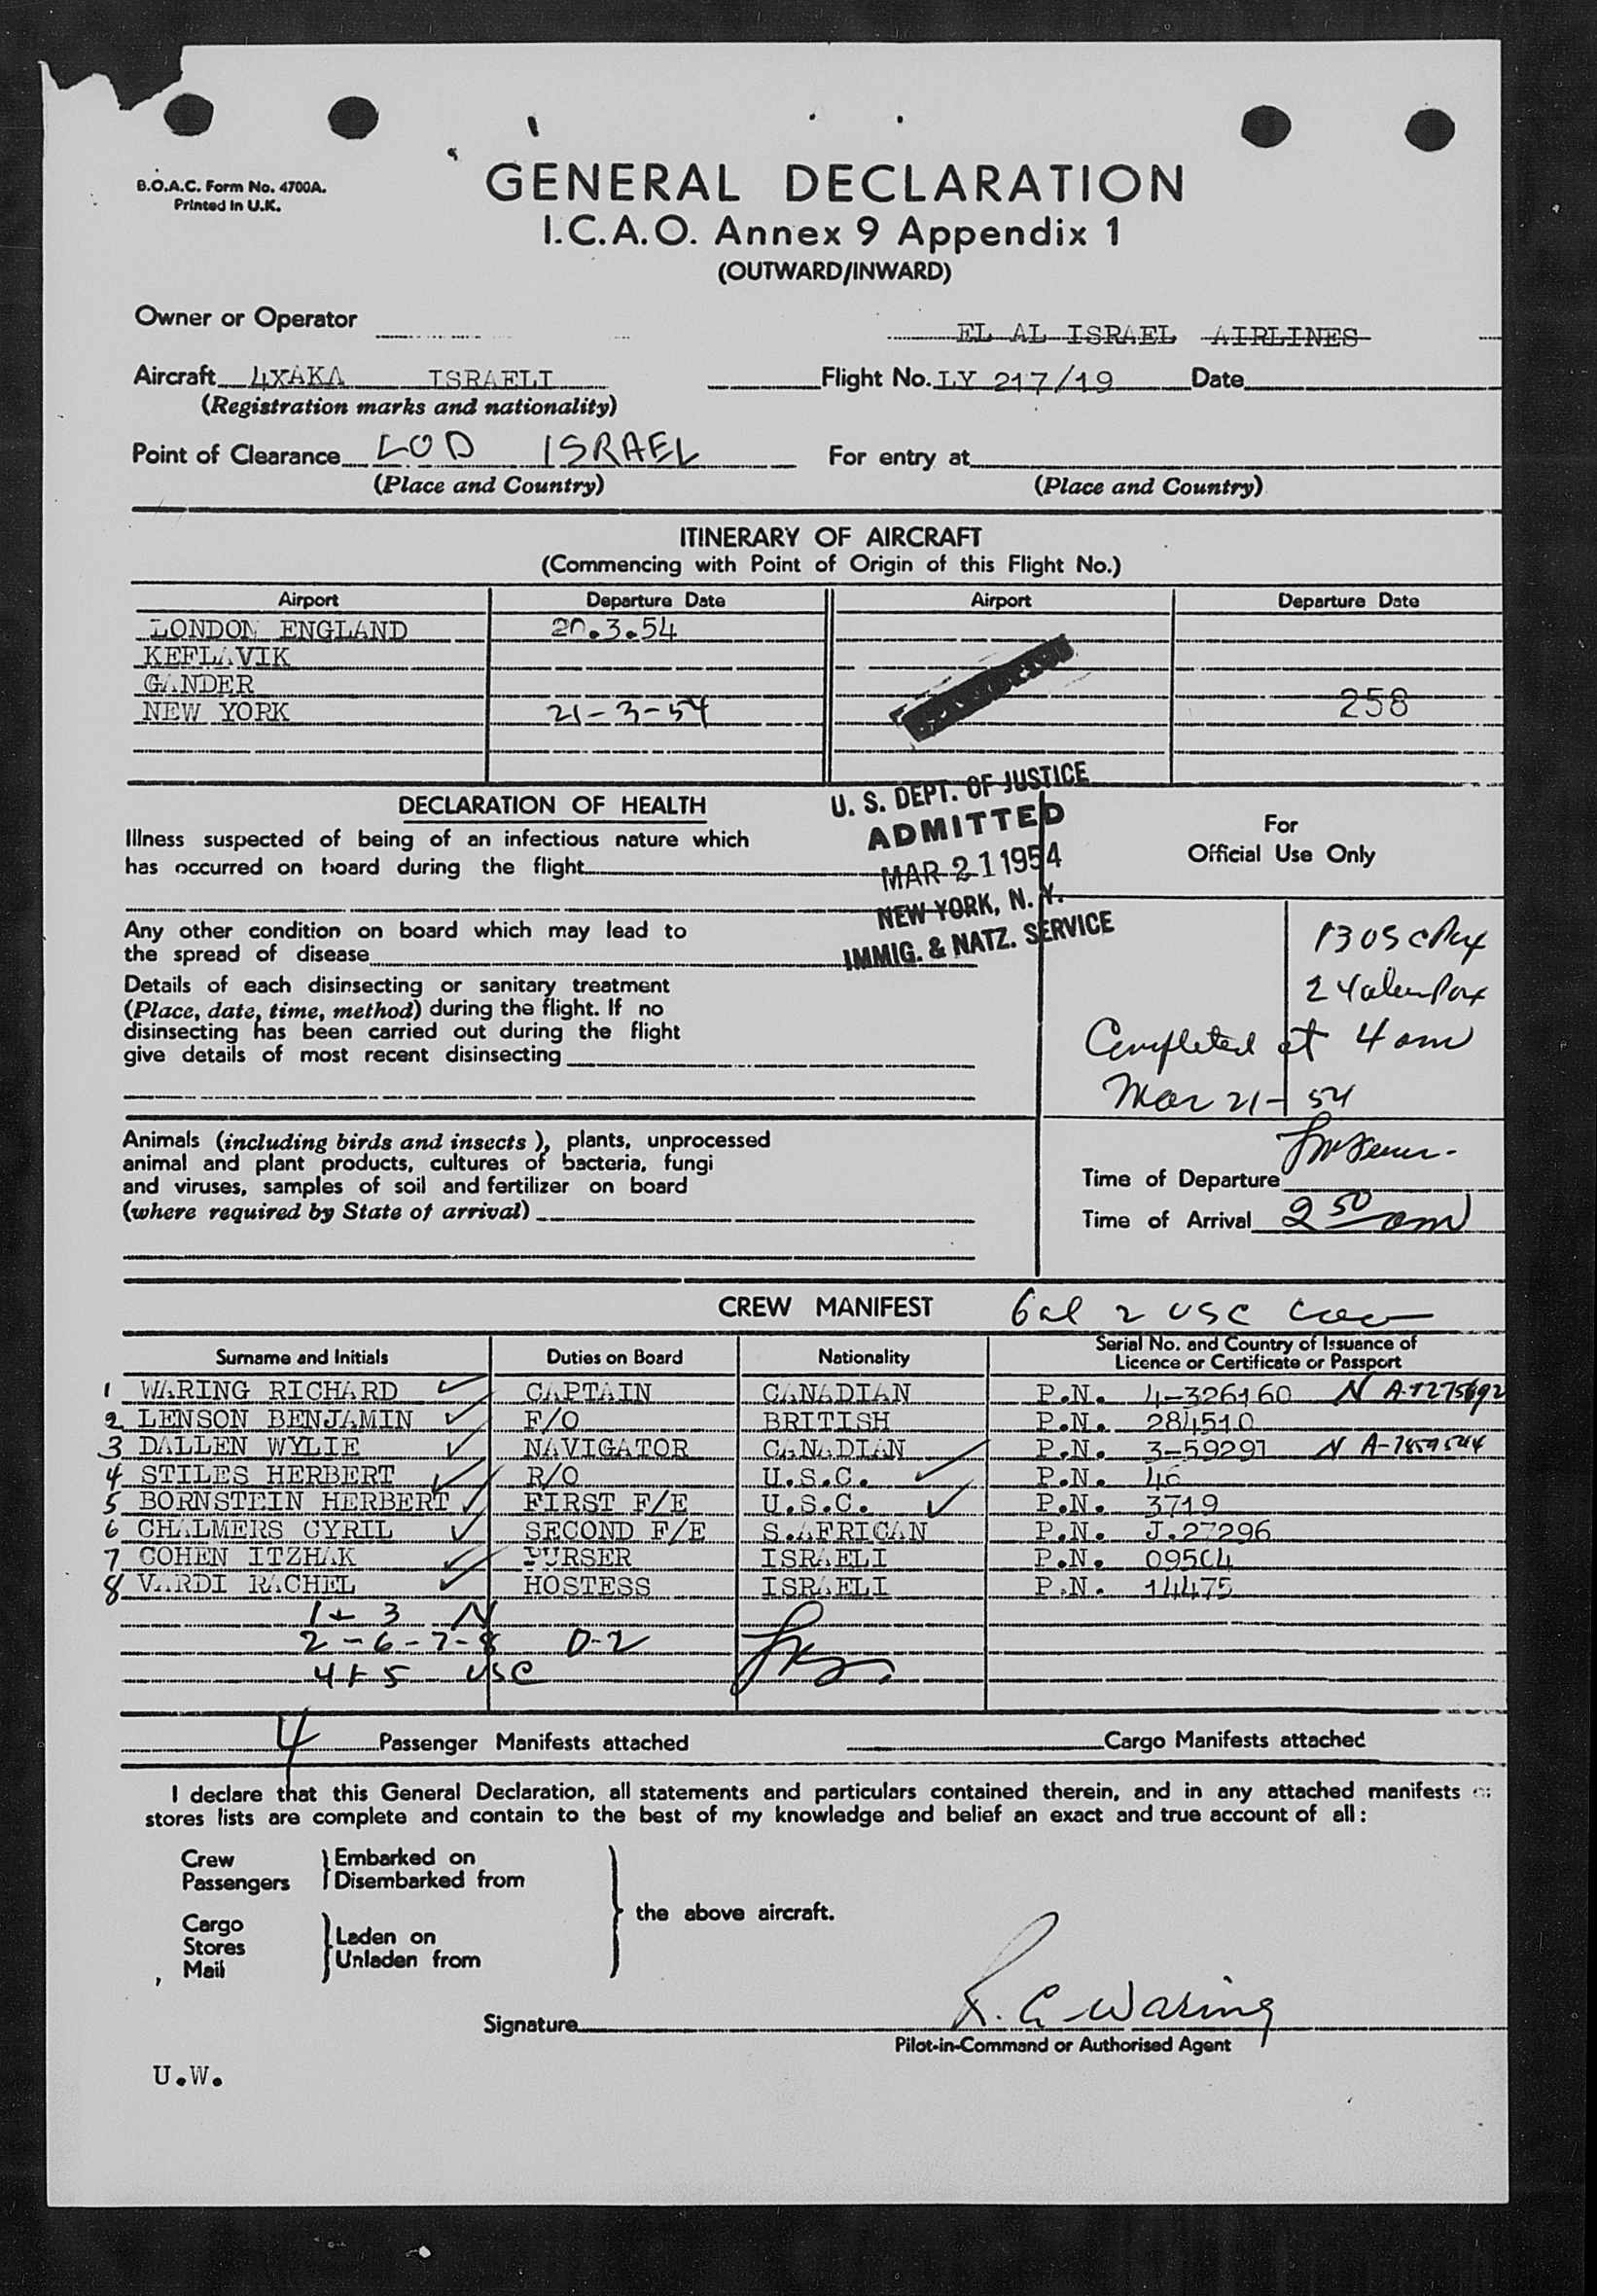 B.O.A.C. Form No. 4700A.
Printed in U.K.
GENERAL DECLARATION
I.C.A.O. Annex 9 Appendix 1
(OUTWARD/INWARD)
Owner or Operator EL AL ISRAEL AIRLINES
Aircraft 4XAKA ISRAELI Flight No. LY 217/19 Date
(Registration marks and nationality)
Point of Clearance LOD ISRAEL For entry at
(Place and Country) (Place and Country)
ITINERARY OF AIRCRAFT
(Commencing with Point of Origin of this Flight No.)
Airport Departure Date Airport Departure Date
LONDON ENGLAND 20.3.54
KEFLAVIK
GANDER
NEW YORK 21-3-54 258
U. S. DEPT. OF JUSTICE
ADMITTED
MAR 21 1954
NEW YORK, N. Y.
IMMIG. & NATZ. SERVICE
DECLARATION OF HEALTH
Illness suspected of being of an infectious nature which
has occurred on board during the flight
Any other condition on board which may lead to
the spread of disease
Details of each disinsecting or sanitary treatment
(Place, date, time, method) during the flight. If no
disinsecting has been carried out during the flight
give details of most recent disinsecting
Animals (including birds and insects), plants, unprocessed
animal and plant products, cultures of bacteria, fungi
and viruses, samples of soil and fertilizer on board
(where required by State of arrival)
For
Official Use Only
Completed at 4 am
Mar 21-54
Time of Departure
Time of Arrival 2 50 am
CREW MANIFEST 6 al 2 USC Crew
Surname and Initials Duties on Board Nationality Serial No. and Country of Issuance of
Licence or Certificate or Passport
1 WARING RICHARD CAPTAIN CANADIAN P.N. 4-326160 N
2 LENSON BENJAMIN F/O BRITISH P.N. 284510
3 DALLEN WYLIE NAVIGATOR CANADIAN P.N. 3-59291 N A-7859544
4 STILES HERBERT R/O U.S.C. P.N. 46
5 BORNSTEIN HERBERT FIRST F/E U.S.C. P.N. 3719
6 CHALMERS CYRIL SECOND F/E S.AFRICAN P.N. J.27296
7 COHEN ITZHAK PURSER ISRAELI P.N. 09504
8 VARDI RACHEL HOSTESS ISRAELI P.N. 14475
1 + 3 N
2-6-7-8 D-2
4 + 5 USC
4 Passenger Manifests attached Cargo Manifests attached
I declare that this General Declaration, all statements and particulars contained therein, and in any attached manifests
stores lists are complete and contain to the best of my knowledge and belief an exact and true account of all:
Crew Embarked on
Passengers Disembarked from
the above aircraft.
Cargo
Stores Laden on
Mail Unladen from
Signature R. C. Waring
Pilot-in-Command or Authorised Agent
U.W.